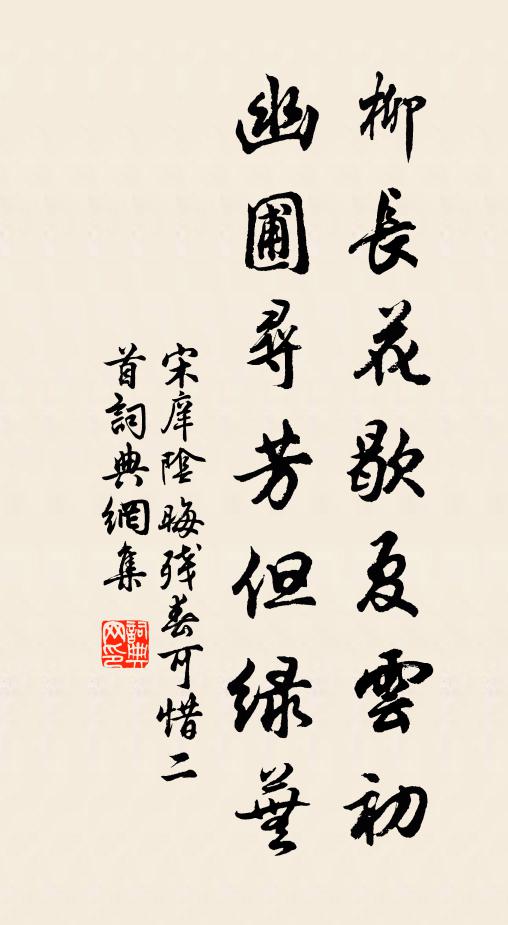 柳長花歇夏雲初
幽圃尋芳但綠蕪
宋庠陰晦殘春可惜二
首詞典網集
詞典
网印